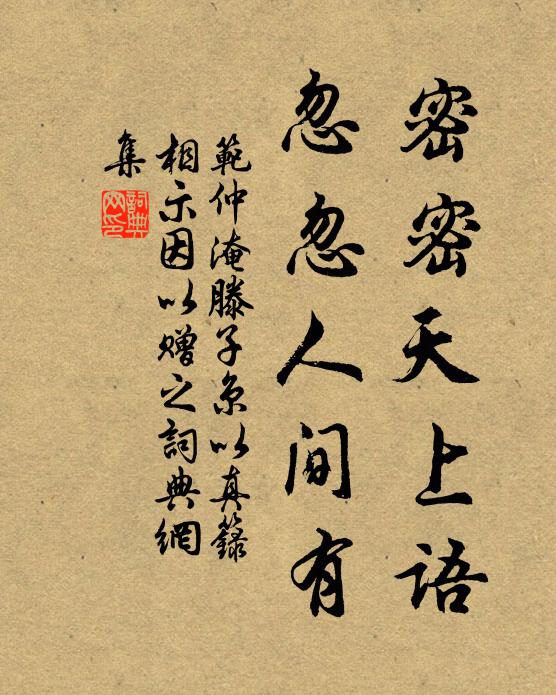 密密天上語
忽忽人间有
範仲淹滕子京以真籙
相示因以赠之詞典網
集
詞典
网印